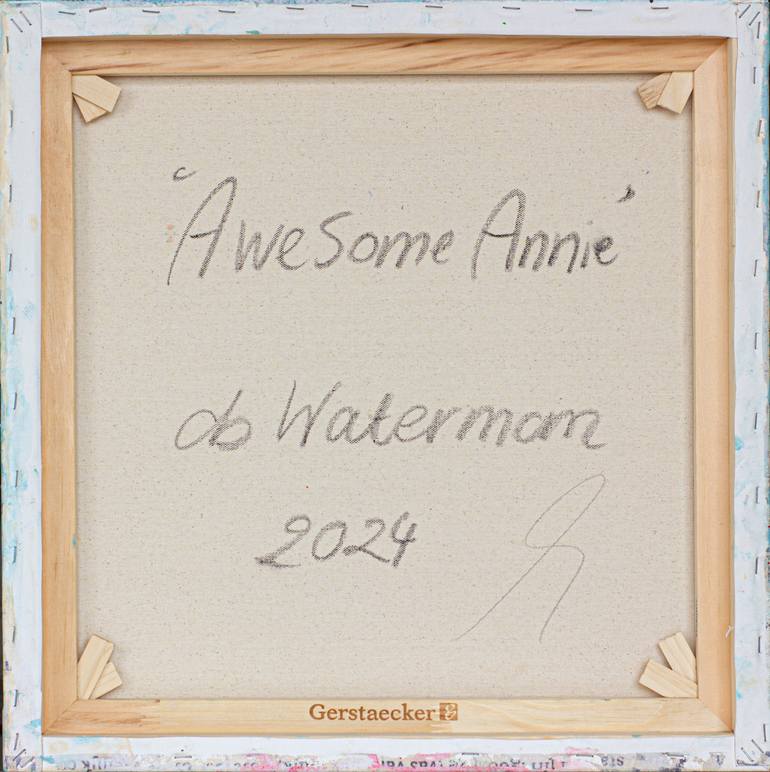 "Awesome Annie"
do Waterman
2024
Gerstaecker